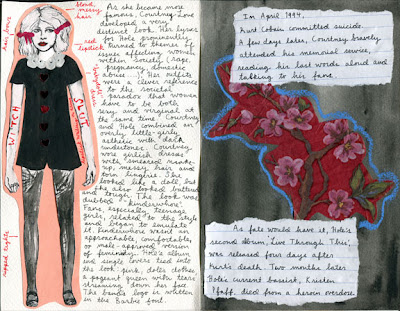 blond,
messy
hair
hair bows
red
lipstick
babydoll
dress
WITCH
SLUT
ripped tights
As she became more
famous, Courtney Love
developed a very
distinct look. Her lyrics
for Hole prominently
turned to themes of
issues affecting women
within society (rape,
pregnancy, domestic
abuse...). Her outfits
were a clever reference
to the societal
paradox that women
have to be both
sexy and virginal at
the same time. Courtney
and Hole combined an
overly little-girly
aesthetic with dark
undertones. Courtney
wore girlish dresses
with smeared make-
up, messy hair and
torn lingerie. She
looked like a doll, but
she also looked battered
and tough. The look was
dubbed "kinderwhore".
Fans, especially teenage
girls, related to the style
and began to emulate
it. Kinderwhore wasn't an
approachable, comfortable,
or male-approved version
of femininity. Hole's album
and single covers tied into
the look: pink, dolls clothes,
a pageant queen with tears
streaming down her face.
The band's logo is written
in the Barbie font.
In April 1994,
Kurt Cobain committed suicide.
A few days later, Courtney bravely
attended his memorial service,
reading his last words aloud and
talking to his fans.
As fate would have it, Hole's
second album, 'Live Through This',
was released four days after
Kurt's death. Two months later
Hole's current bassist, Kristen
Pfaff, died from a heroin overdose.